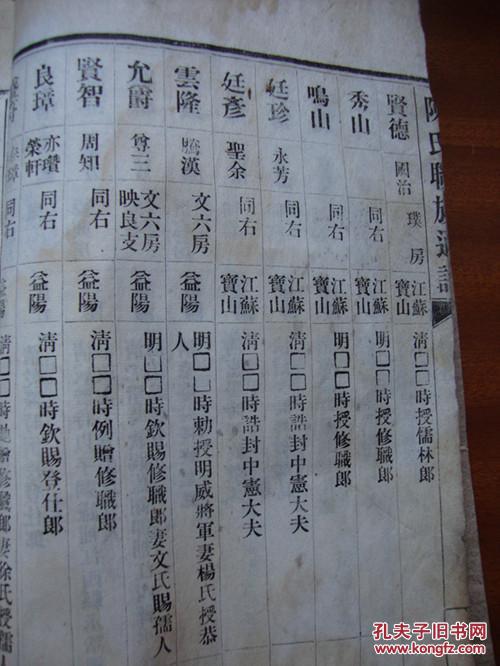 陳氏聯族通譜
賢德 國治 璞房 江蘇寶山 清□□時授儒林郎
秀山 同右 江蘇寶山 明□□時授修職郎
鳴山 同右 江蘇寶山 明□□時授修職郎
廷珍 永芳 同右 江蘇寶山 清□□時誥封中憲大夫
廷彥 聖余 同右 江蘇寶山 清□□時誥封中憲大夫
雲隆 騰漢 文六房 益陽 明□□時勅授明威將軍妻楊氏授恭人
允爵 尊三 文六房映良支 益陽 明□□時欽賜修職郎妻文氏賜孺人
賢智 周知 同右 益陽 清□□時例贈修職郎
良璋 亦瓚榮軒 同右 益陽 清□□時欽賜登仕郎
同右 益陽 清□□時勅贈修職郎妻徐氏授孺人
孔夫子旧书网
www.kongfz.com